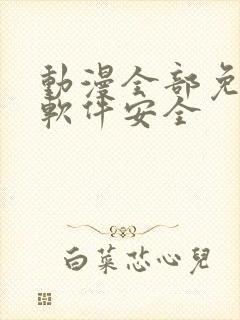 動漫全部免
軟件安全
白菜芯心兒